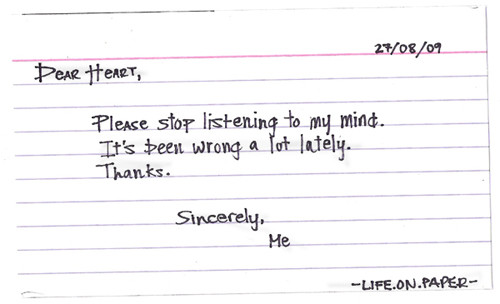 27/08/09
Dear Heart,
Please stop listening to my mind.
It's been wrong a lot lately.
Thanks.
Sincerely,
Me
-LIFE.ON.PAPER-